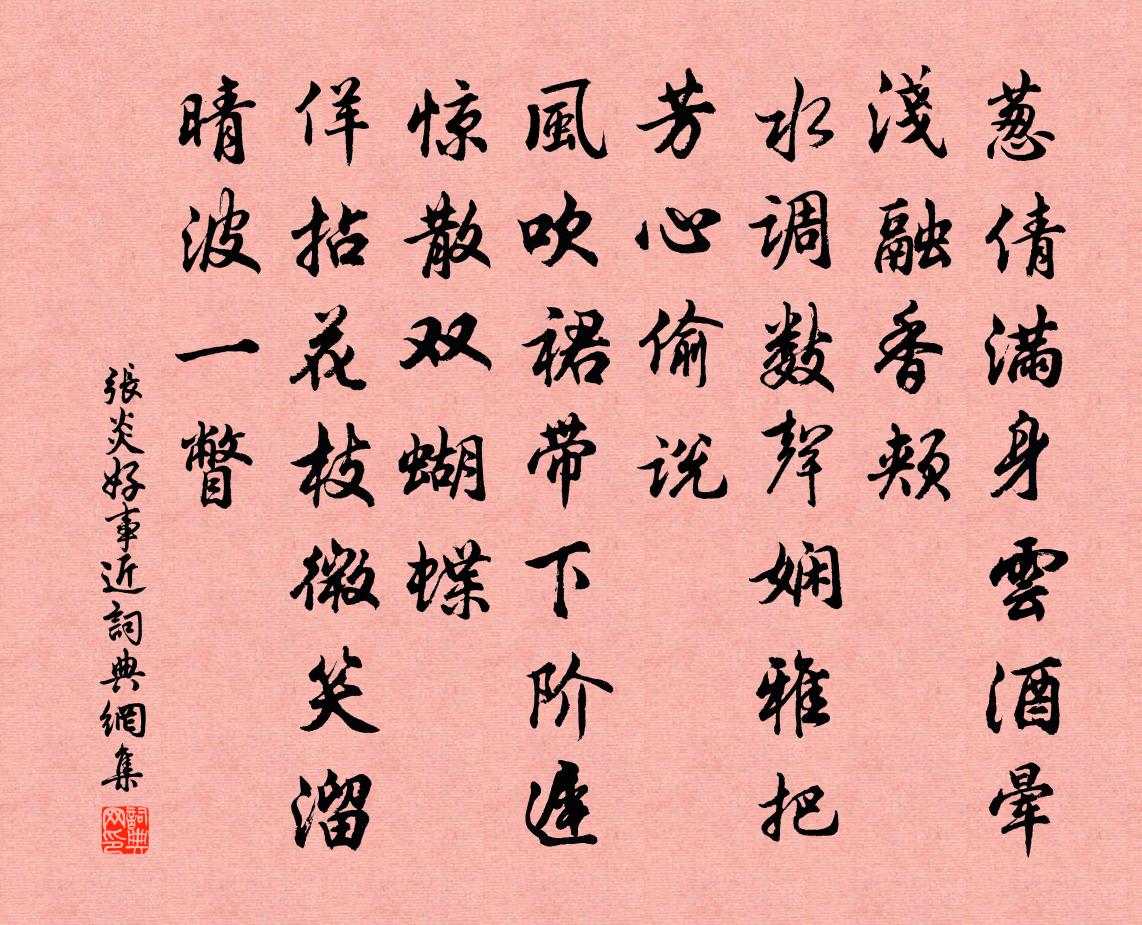 葱倩满身雲酒晕
淺融香颊
水调数聲娴雅把
芳心偷说
風吹裙带下阶遲
惊散双蝴蝶
佯拈花枝微笑溜
晴波一瞥
張炎好事近詞典網集
詞典网印